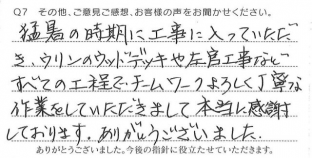 Q7 その他、ご意見ご感想、お客様の声をお聞かせください。
猛暑の時期に工事に入っていただ
き、ウリンのウッドデッキや左官工事など
すべての工程でチームワークよろしく丁寧な
作業をしていただきまして本当に感謝
しております。ありがとうございました。
ありがとうございました。今後の指針に役立たせていただきます。